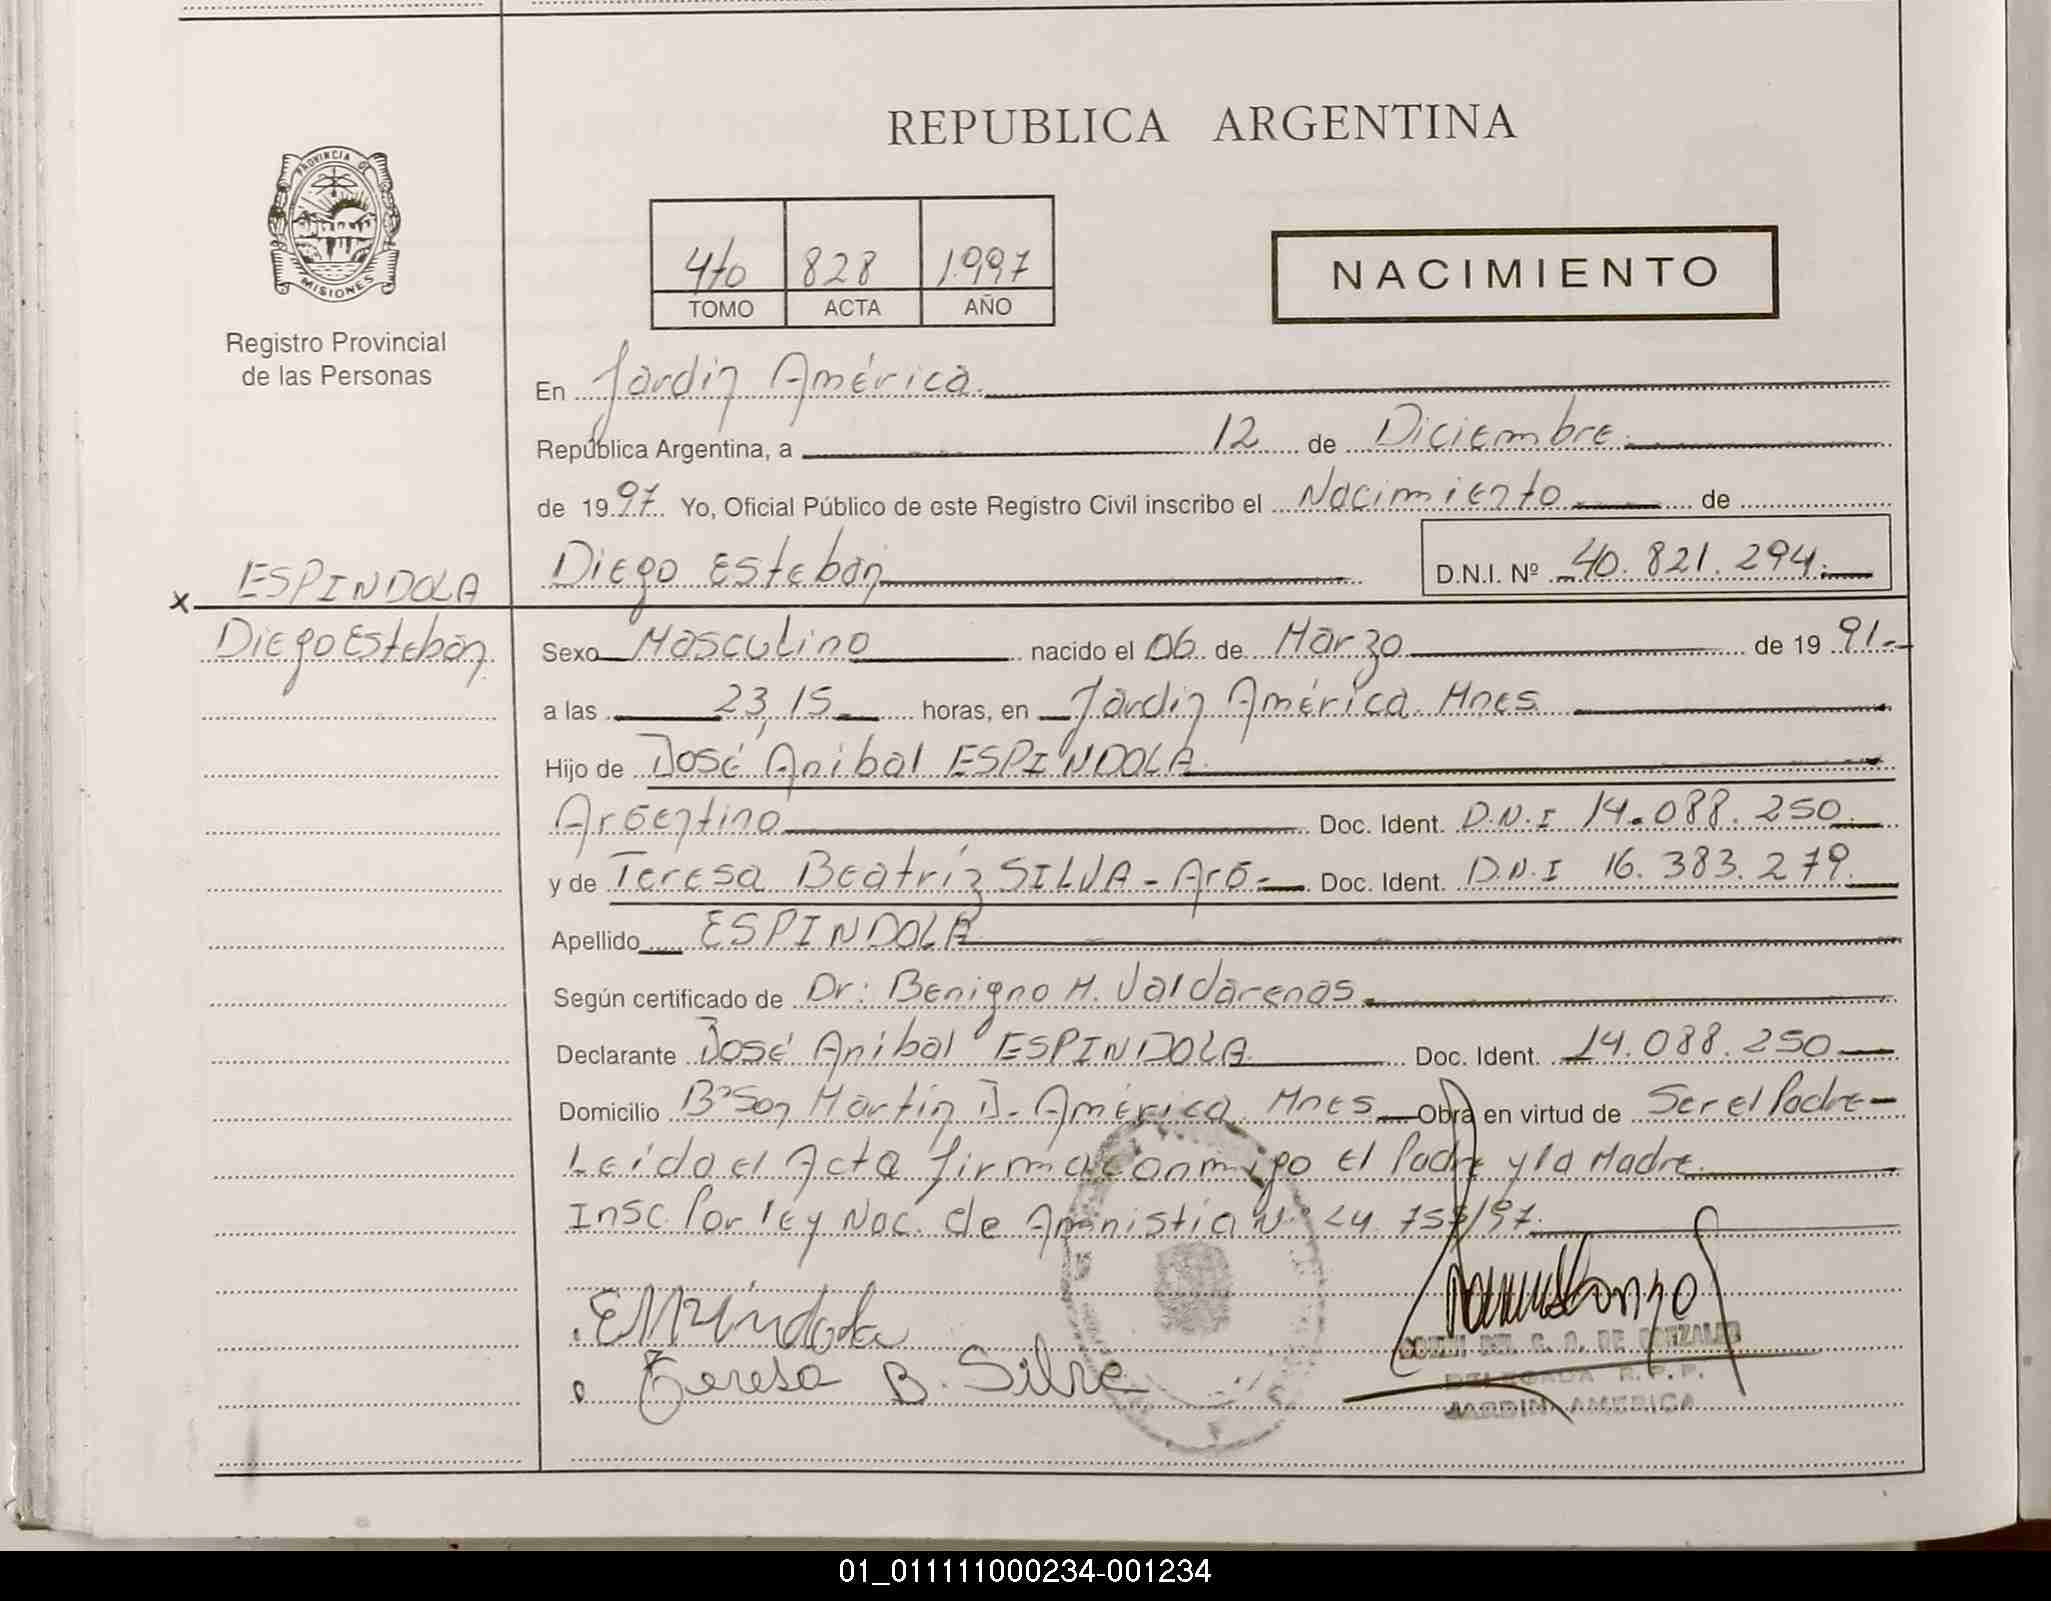 REPUBLICA ARGENTINA
PROVINCIA DE
MISIONES
Registro Provincial
de las Personas
4to 828 1.997
TOMO ACTA AÑO
NACIMIENTO
En Jardín América.
República Argentina, a 12 de Diciembre.
de 1997. Yo, Oficial Público de este Registro Civil inscribo el Nacimiento de
ESPINDOLA
Diego Esteban
Diego Esteban D.N.I. Nº 40.821.294.
Sexo Masculino nacido el 06 de Marzo de 1991.-
a las 23,15 horas, en Jardín América. Mnes
Hijo de José Anibal ESPINDOLA.
Argentino Doc. Ident. D.N.I 14.088.250.
y de Teresa Beatríz SILVA - Arg - Doc. Ident. D.N.I 16.383.279.
Apellido ESPINDOLA
Según certificado de Dr: Benigno M. Valdarenas.
Declarante José Anibal ESPINDOLA Doc. Ident. 14.088.250
Domicilio Bº San Martín J. América. Mnes Obra en virtud de Ser el Padre
Leída el Acta firma conmigo el Padre y la Madre.
Insc. Por ley Nac. de Amnistía Nº 24.755/97.
Teresa B. Silva
DE GONZALEZ
DELEGADA R.P.P.
JARDIN AMERICA
01_011111000234-001234